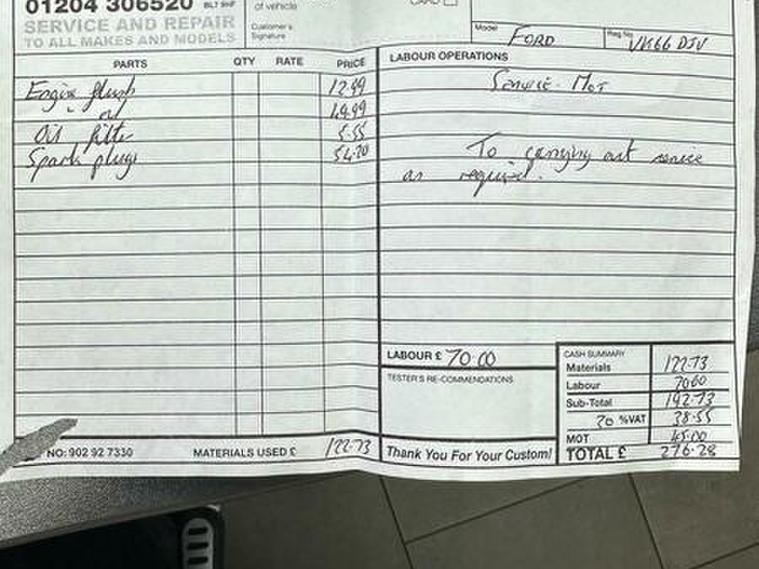 01204 306520 BL7 9HF
SERVICE AND REPAIR
TO ALL MAKES AND MODELS
of vehicle
Customer's
Signature
CARD
Model FORD
Reg No. VK66 DJV
PARTS QTY RATE PRICE
Engine flush 12.99
oil 49.99
Oil filter 5.55
Spark plugs 54.20
LABOUR OPERATIONS
Service - MOT
To carrying out service
as required.
LABOUR £ 70.00
TESTER'S RE-COMMENDATIONS
CASH SUMMARY
Materials 122.73
Labour 70.00
Sub-Total 192.73
20 %VAT 38.55
MOT 45.00
TOTAL £ 276.28
NO: 902 92 7330
MATERIALS USED £ 122.73
Thank You For Your Custom!